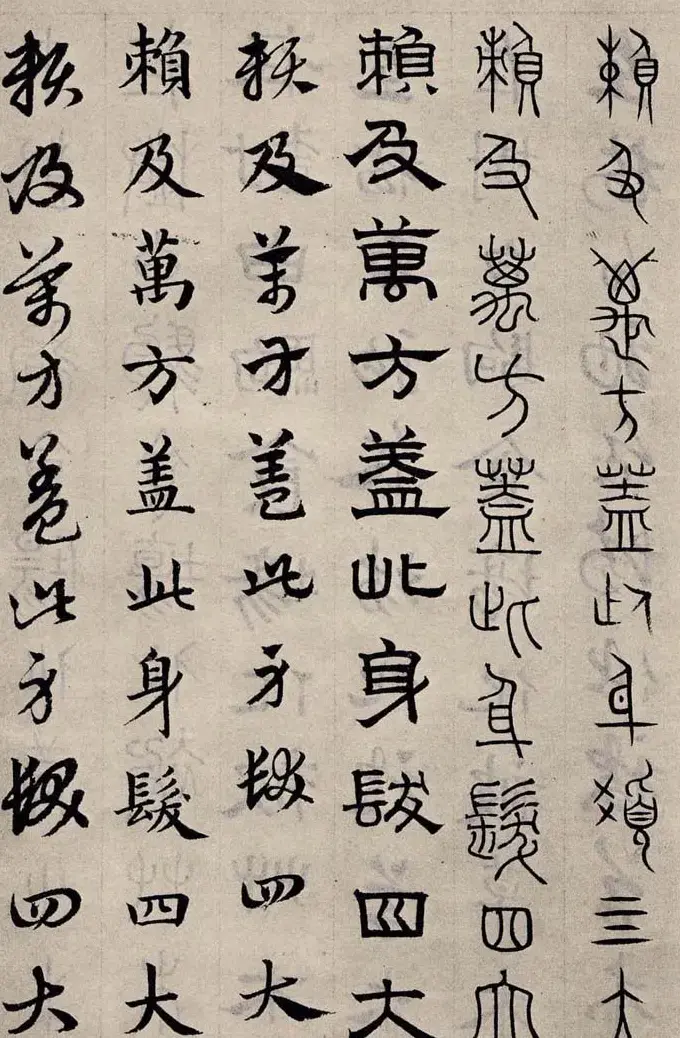 賴及萬方蓋此身髮四大
賴及萬方蓋此身髮四大
賴及萬方蓋此身髮四大
賴及萬方盖此身髮四大
賴及萬方盖此身髮四大
賴及萬方盖此身髮四大